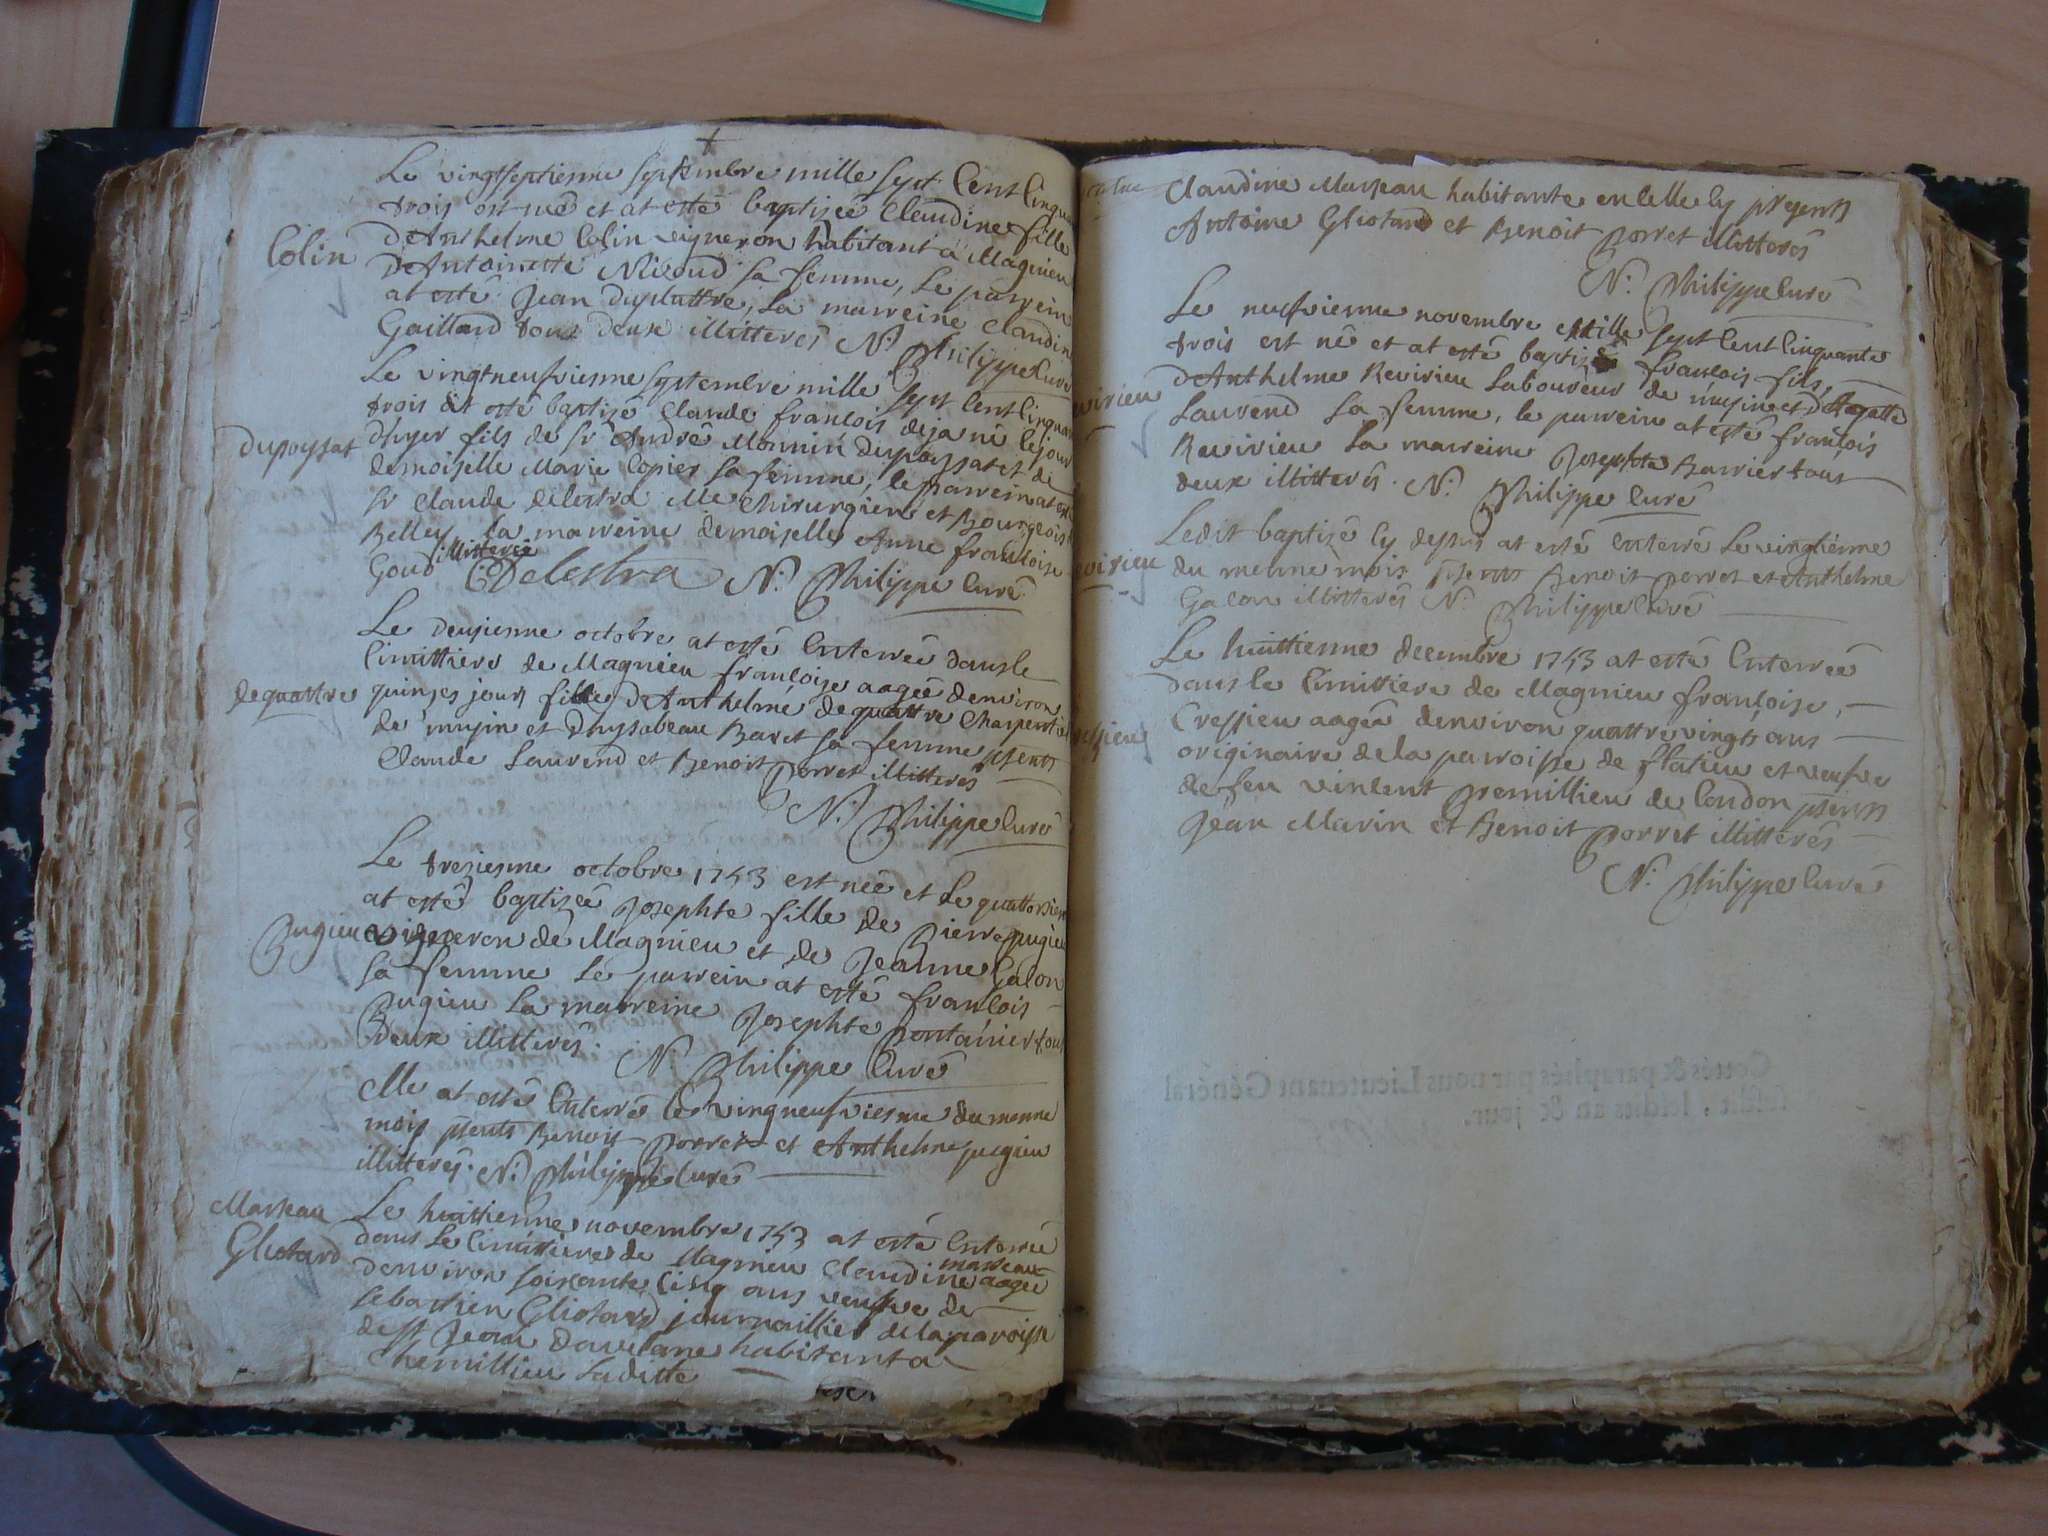 Le vingtseptienne septembre mille sept Cent Cinquan
trois est née et at esté baptizée Claudine fille
Colin
D'Anthelme Colin vigneron habitant a Magnieu
D'Antoinette Nivoud sa femme, Le parrein
at esté Jean Duplattre, La marreine Claudine
Gaillard tous deux illitterés N. Philippe Curé
Le vingtneufviesme septembre mille sept Cent Cinquan
trois at esté baptizé Claude françois deja né le jour
dupoysat
d'hyer fils de Sr André Monnin Dupoysat et de
demoiselle Marie Copier sa femme, le parrein at esté
Sr Claude Delestra Me Chirurgien et Bourgeois
Belley la marreine demoiselle Anne françoise
Goud illitterée
CDelestra N. Philippe Curé
Le deuxienne octobre at esté Enterrée dans le
Cimittiere de Magnieu françoise aagée denviron
dequattre
quinzes jours fille D'Anthelme dequattre Charpentier
de musin et D'hysabeau Baret sa femme pñts
Claude Laurend et Benoit Porret illitterés
N. Philippe Curé
Le treziesme octobre 1753 est née et Le quattorsien
at esté baptizée Josephte fille de Pierre pugieu
Pugieu
vigneron de Magnieu et de Jeanne Galon
sa femme Le parrein at esté françois
Pugieu La marreine Josephte Pontanier tous
deux illitterés. N. Philippe Curé
Elle at esté Enterrée le vingneufviesme du menne
mois pñts Benoit Porret et Anthelme pugieu
illitterés. N. Philippe Curé
Marteau
Gliotard
Le huittienne novembre 1753 at esté Enterrée
dans Le Cimittiere de Magnieu Claudine marteau aagée
denviron soixante Cinq ans veufve de
sebastien Gliotard journaillier de la paroisse
de st Jean Davelane habitante a
Chemillieu Laditte
Claudine Marteau habitante en Celle Cy presents
Antoine Gliotard et Benoit Porret illitterés
N. Philippe Curé
Le neufvienne novembre Mille sept Cent Cinquante
trois est né et at esté baptizé françois fils,
evirieu
d'Anthelme Revirieu Laboureur de musin et D'Agatte
Laurend sa femme, le parrein at esté françois
Revirieu La marreine Josephte Barrier tous
deux illitterés. N. Philippe Curé
Ledit baptizé Cy dessus at esté Enterré Le vingtiénne
evirieu
du menne mois pñts Benoit Porret et Anthelme
Galon illitterés N. Philippe Curé
Le huittienne decembre 1753 at esté Enterrée
dans le Cimittiere de Magnieu françoise,
Cressieu aagée denviron quattre vingts ans
essieu
originaire de la parroisse de flaxieu et veufve
de feu vincent Premillieu de Condon pñts
Jean Marin et Benoit Porret illitterés
N. Philippe Curé